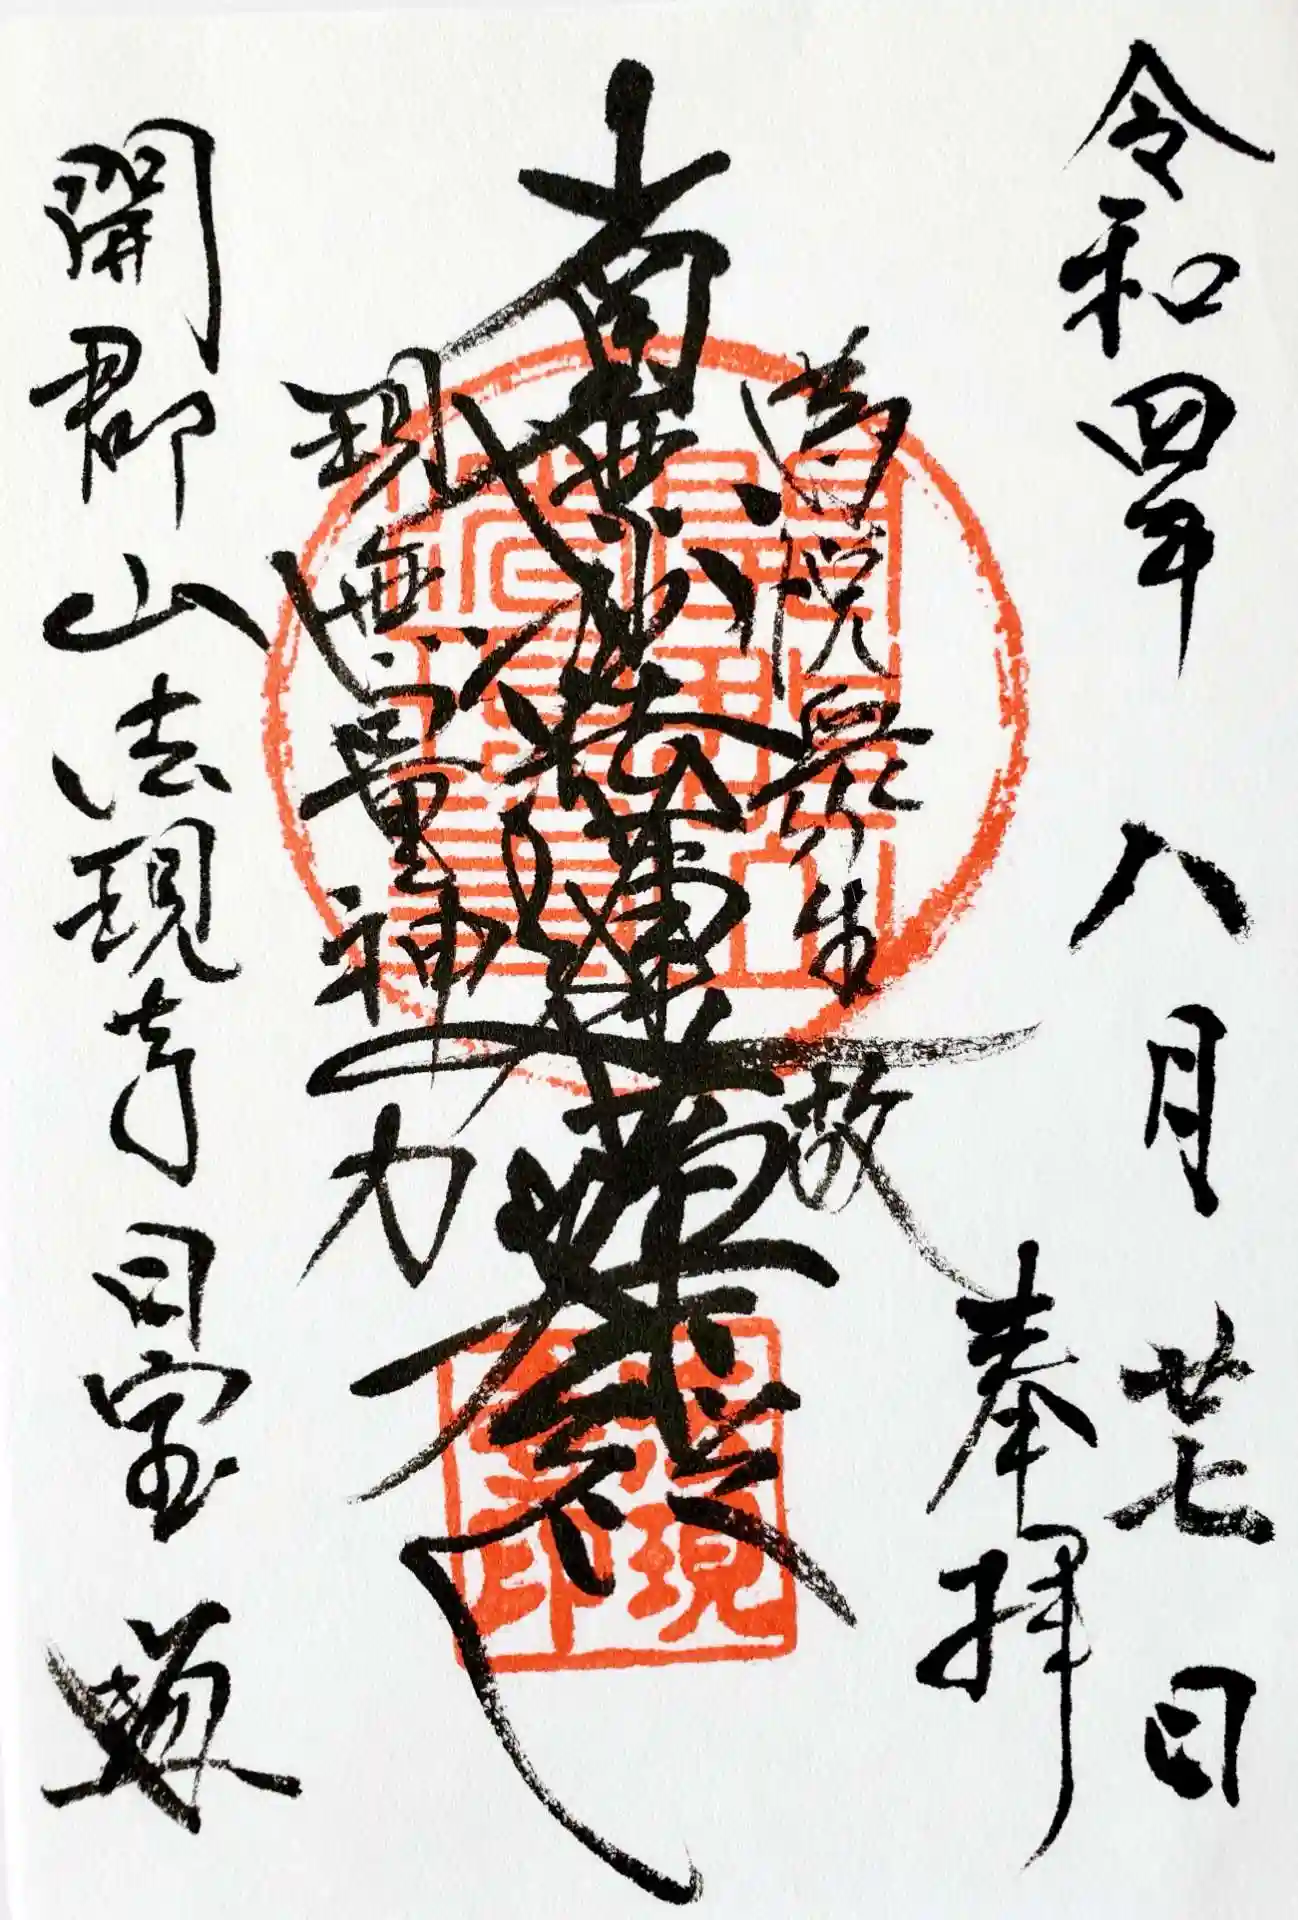 令和四年 八月 廿七日
奉拝
為悦衆生故
南無妙法蓮華経
現無量神力
開郡山 法現寺 日宝
現
印